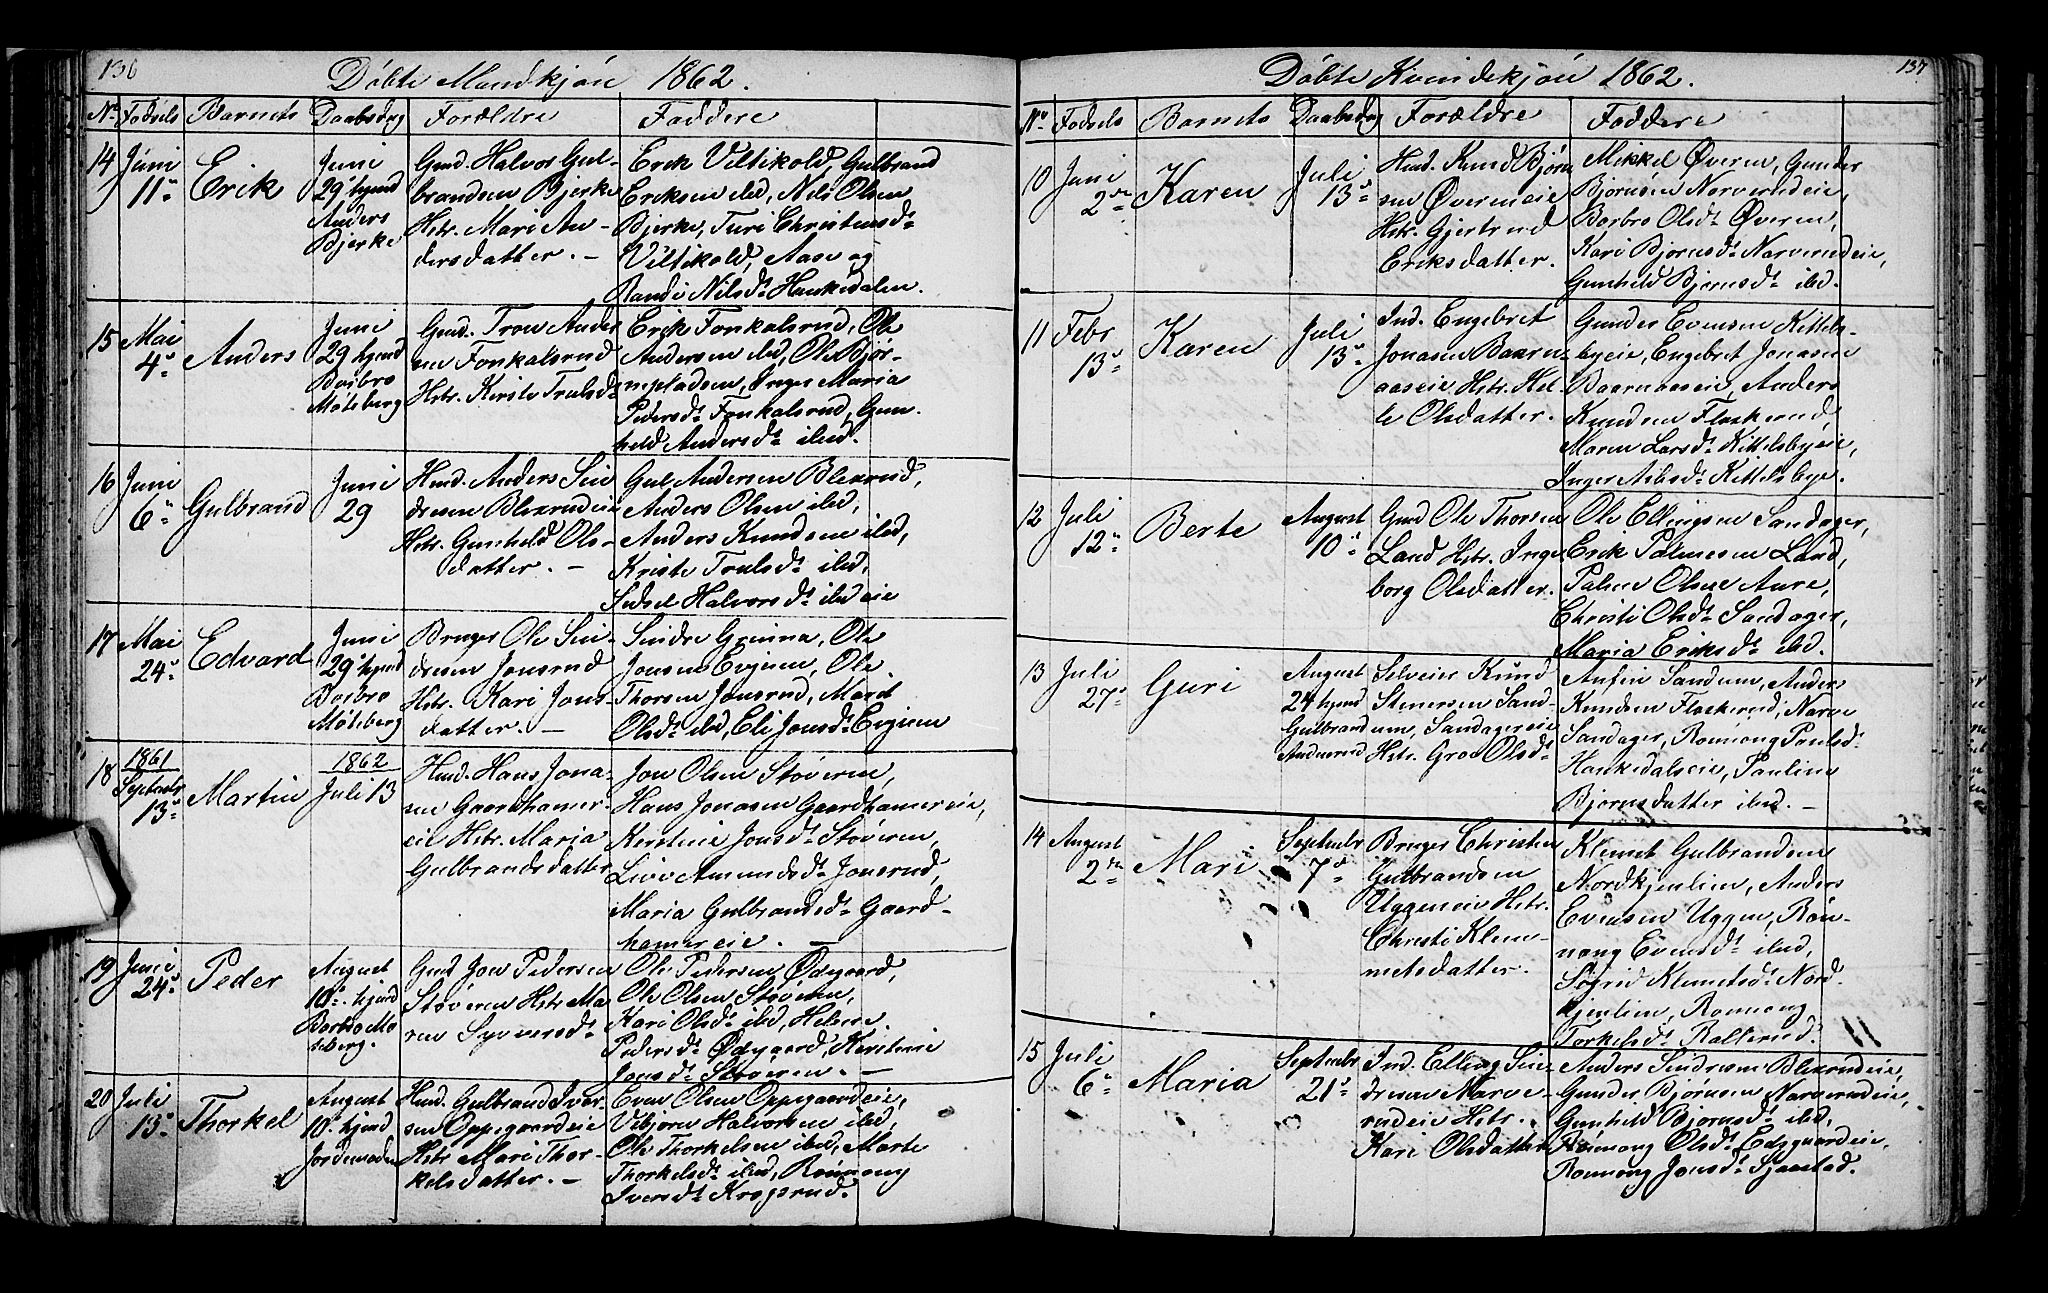 136
Döbte Mandkjön 1862.
No Födsels Barnets Daabsdag Forældre Faddere
14 Juni 11te Erik Juni 29 hjemd Anders Bjerke
Gmd. Halvor Gul-
brandsen Bjerke
Hstr. Mari An-
dersdatter. -
Erik Viltikold, Gulbrand
Eriksen ibd, Nils Olsen
Bjerke, Turi Christensdt
Viltikold, Aase og
Randi Nilsdt Hankedalen.
15 Mai 4de Anders Juni 29 hjemd Barbro Möteberg
Gmd. Tron Ander
sen Fonkalsrud
Hstr. Kirsti Trulsdt
Erik Fonkalsrud, Ole
Andersen ibd, Ole Bjør-
Inger Maria
Pedersdt Fonkalsrud, Gun-
held Andersdt ibd.
16 Juni 6te Gulbrand Juni 29
Husmd. Anders Sin
dresen Blexrudeie
Hstr. Gunheld Ols-
datter. -
Gul Andersen Blexrud,
Anders Olsen ibd,
Anders Knudsen ibd,
Kristi Trulsdt ibd,
Sidsel Halvorsdt ibdeie
17 Mai 24de Edvard Juni 29 hjemd Barbro Möteberg
Bruger Ole Sin-
dresen Jonsrud
Hstr. Kari Jons-
datter. -
Sindre Grimna, Ole
Jonsen Evgien, Ole
Thorsen Jonsrud, Maret
Olsdt ibd, Eli Jonsdt Evgien
18 1861 Septembr 13de Martin 1862 Juli 13
Husmd. Hans Jona-
sen Gaardhamer-
eie Hstr. Maria
Gulbrandsdatter
Jon Olsen Støveren,
Hans Jonasen Gaardhamereie,
Kerstine Jonsdt Støveren,
Livo Amundsdt Jonsrud,
Maria Gulbrandsdt Gaard-
hamereie. -
19 Juni 24de Peder August 10de hjemd Barbro Mö teberg.
Gmd Jon Pedersen
Støveren Hstr Ma
ren Syversdt
Ole Pedersen Ødegaard,
Ole Olsen Støveren,
Kari Olsdt ibd, Helene
Pedersdt Ødegaard, Kerstine
Jonsdt Støveren. -
20 Juli 13de Thorkel August 10de hjemd
Husmd. Gulbrand Iver-
sen Oppegaardeie
Hstr Mari Thor-
kelsdatter. -
Even Olsen Oppegaardeie,
Vibjørn Halvorsen ibd,
Ole Thorkelsen ibd, Marte
Thorkelsdt ibd, Rönnoug
Iversdt Krogsrud.
137
Döbte Kvindekjön 1862.
No Fødsels Barnets Daabsdag Forældre Faddere
10 Juni 2den Karen Juli 13de
Husmd. Knud Bjørn
sen Øverneie
Hstr. Gjertrud
Eriksdatter.
Mikkel Øveren, Gunder
Bjørnsen Narverudeie,
Barbro Olsdt Øveren,
Kari Bjørnsdt Narverudeie,
Gunheld Bjørnsdt ibd.
11 Febr 13de Karen Juli 13de
Ind. Engebret
Jonasen Baarn-
aaseie Hstr. Hel-
le Olsdatter.
Gunder Evensen Kittels-
byeie, Engebret Jonasen
Baarnaaseie, Anders
Knudsen Flaskerud,
Maren Larsdt Kittelsbyeie,
Inger Asbsdt Kittelsbye.
12 Juli 12te Berte August 10de
Gmd Ole Thorsen
Land Hstr. Inge
borg Olsdatter.
Ole Ellingsen Sandager,
Erik Palmesen Land,
Palmen Olsen Aure,
Christi Olsdt Sandager,
Maria Eriksdt ibd.
13 Juli 27de Guri August 24 hjemd Gulbrand
Selveier Knud
Stenersen Sand-
um, Sandagereie
Hstr. Groe Olsdt
Anfin Sandum, Anders
Knudsen Flaskerud, Narve
Sandager, Rönnoug Paulsdt
Hankedalseie, Pauline
Bjørnsdatter ibd. -
14 August 2den Mari Septembr 7de
Bruger Christen
Gulbrandsen
Uggeneie Hstr.
Christi Klem-
metsdatter.
Klemet Gulbrandsen
Nordkjenlien, Anders
Evensen Uggen, Rön-
noug Evensdt ibd,
Sigrid Klemetsdt Nord-
kjenlien, Rönnoug
Torkelsdt Rallerud.
15 Juli 6te Maria Septembr 21de
Ind. Elling Sin-
dresen Narve-
rudeie Hstr.
Kari Olsdatter
Anders Sindresen Blexrudeie,
Gunder Bjørnsen Narverudeie,
Gunheld Bjørnsdt ibd,
Rönnoug Olsdt Edsgaardeie,
Rönnoug Jonsdt Sjaastad.